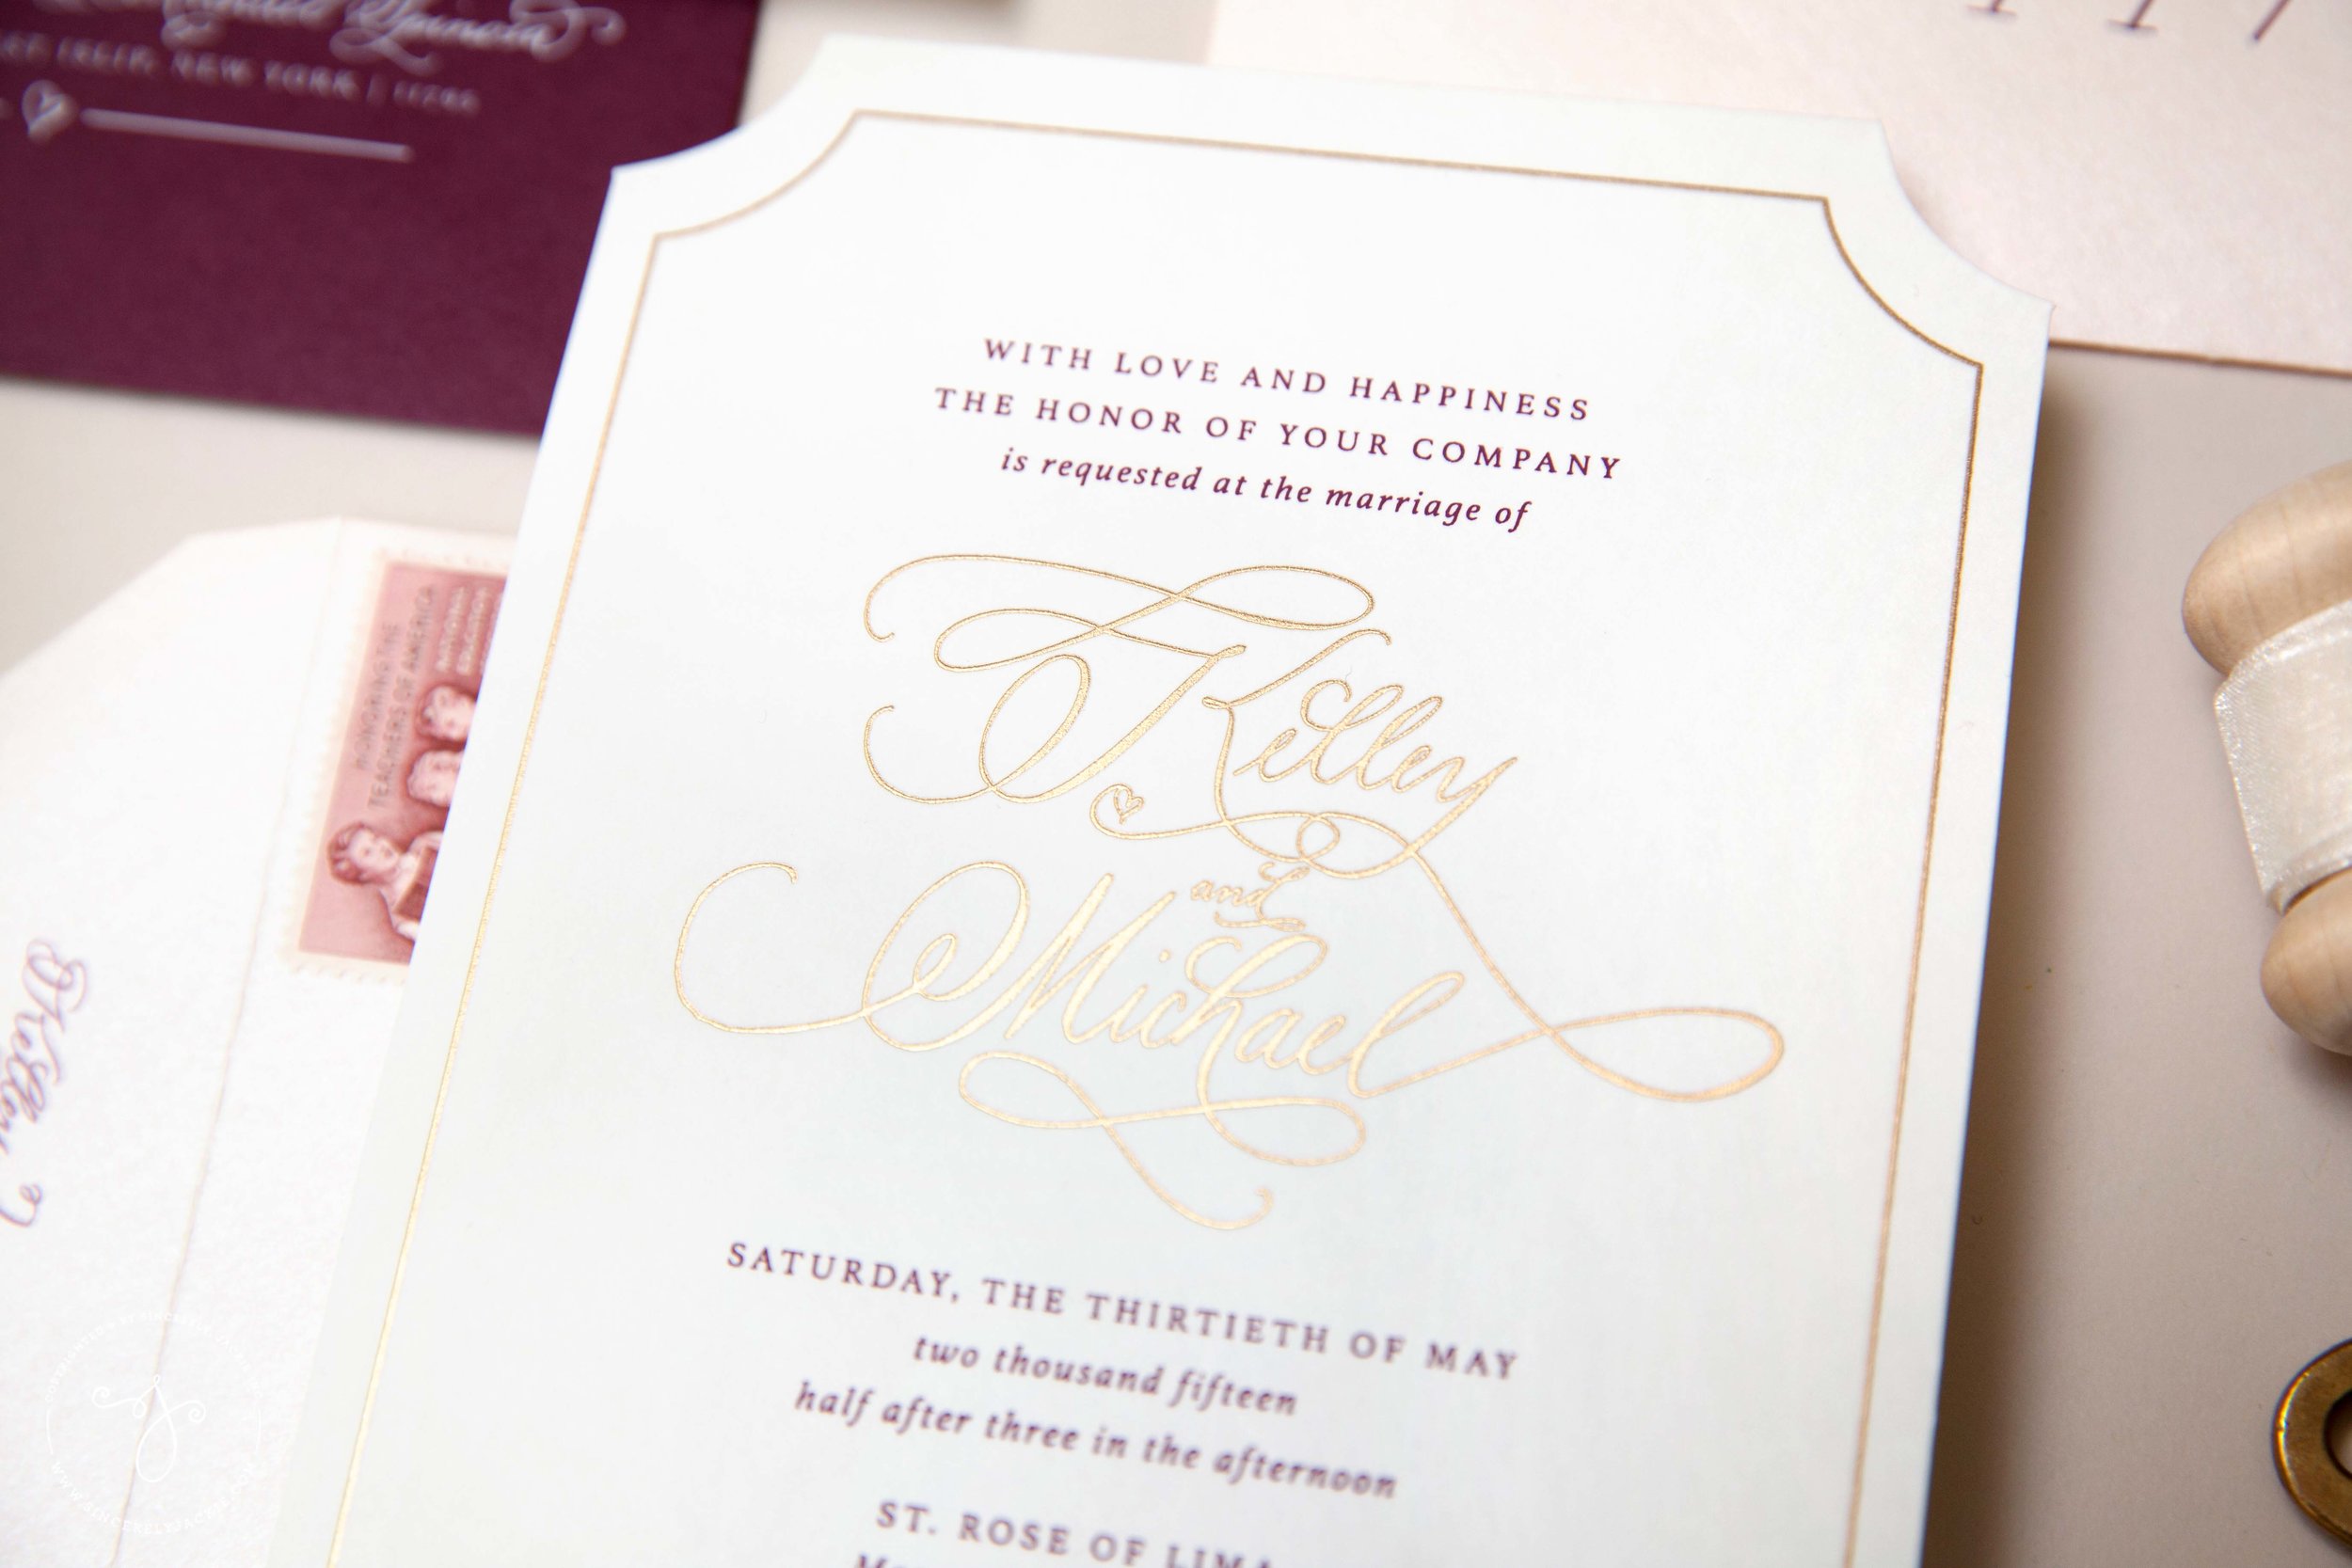 NEW YORK |
WITH LOVE AND HAPPINESS
THE HONOR OF YOUR COMPANY
is requested at the marriage of
Kelley
and
Michael
SATURDAY, THE THIRTIETH OF MAY
two thousand fifteen
half after three in the afternoon
ST. ROSE OF LIMA
HONORING THE
TEACHERS OF AMERICA
NATIONAL
EDUCATION